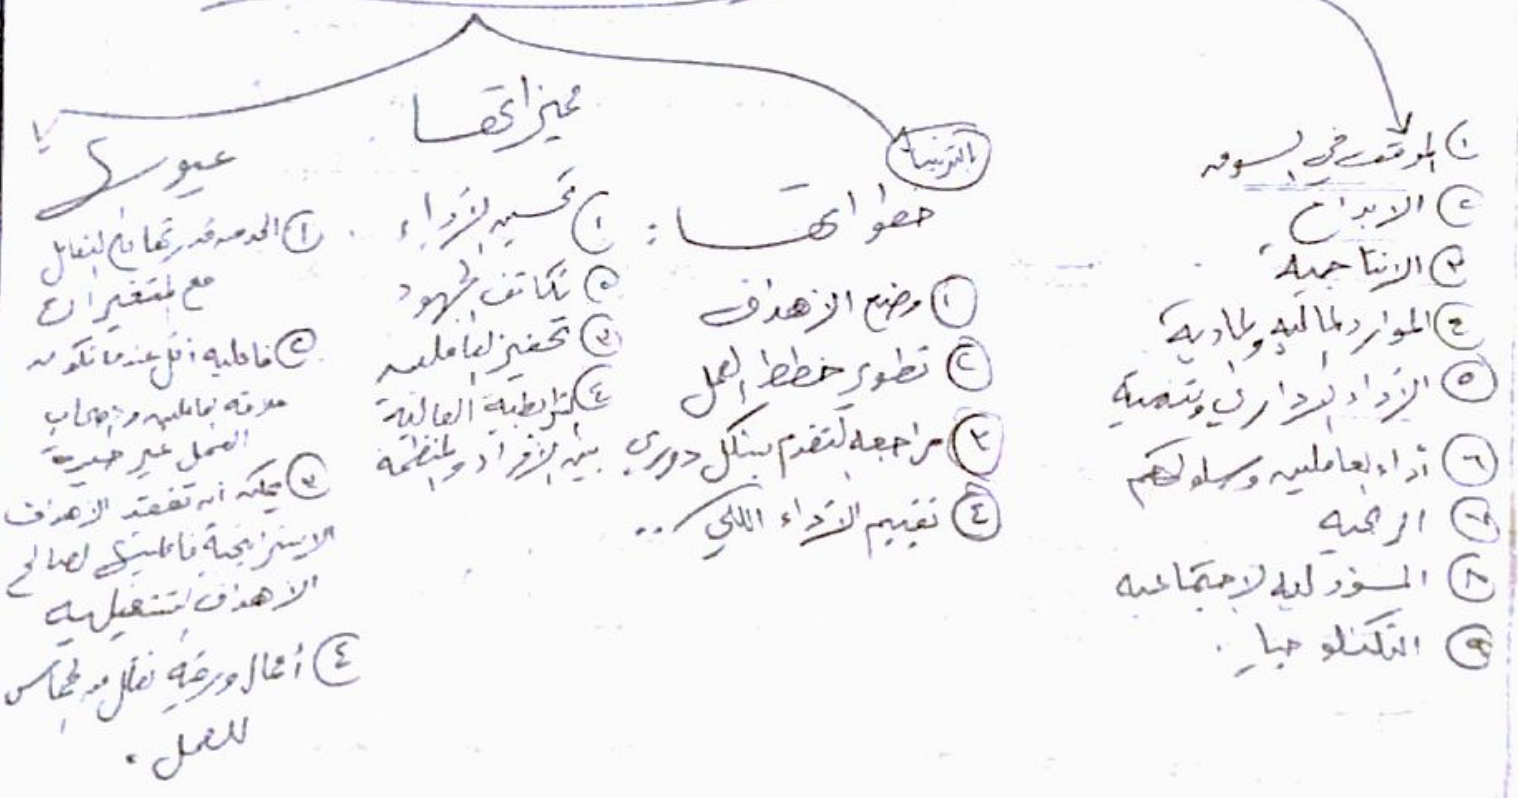 ① الموقف في السوق
② الابداع
③ الانتاجية
④ الموارد المالية والمادية
⑤ الأداء الإداري وتنمية
⑥ أداء العاملين وسلوكهم
⑦ الربحية
⑧ المسؤولية الاجتماعية
⑨ التكنلوجيا.
خطواتها:
① وضع الأهداف
② تطوير خطط العمل
③ مراجعة التقدم بشكل دوري
④ تقييم الأداء الكلي..
مميزاتها
① تحسين الأداء
② تكاتف الجهود
③ تحفيز العاملين
④ الرابطية العالية
بين الأفراد والمنظمة
عيوبها
① الحد من قدرتها على التعامل
مع المتغيرات
② فاعلية أقل عندما تكون
علاقة العاملين وأصحاب
العمل غير جيدة
③ يمكن أن تفقد الأهداف
الاستراتيجية فاعليتها لصالح
الأهداف التشغيلية
④ أعمال ورقية تقلل من الحماس
للعمل.